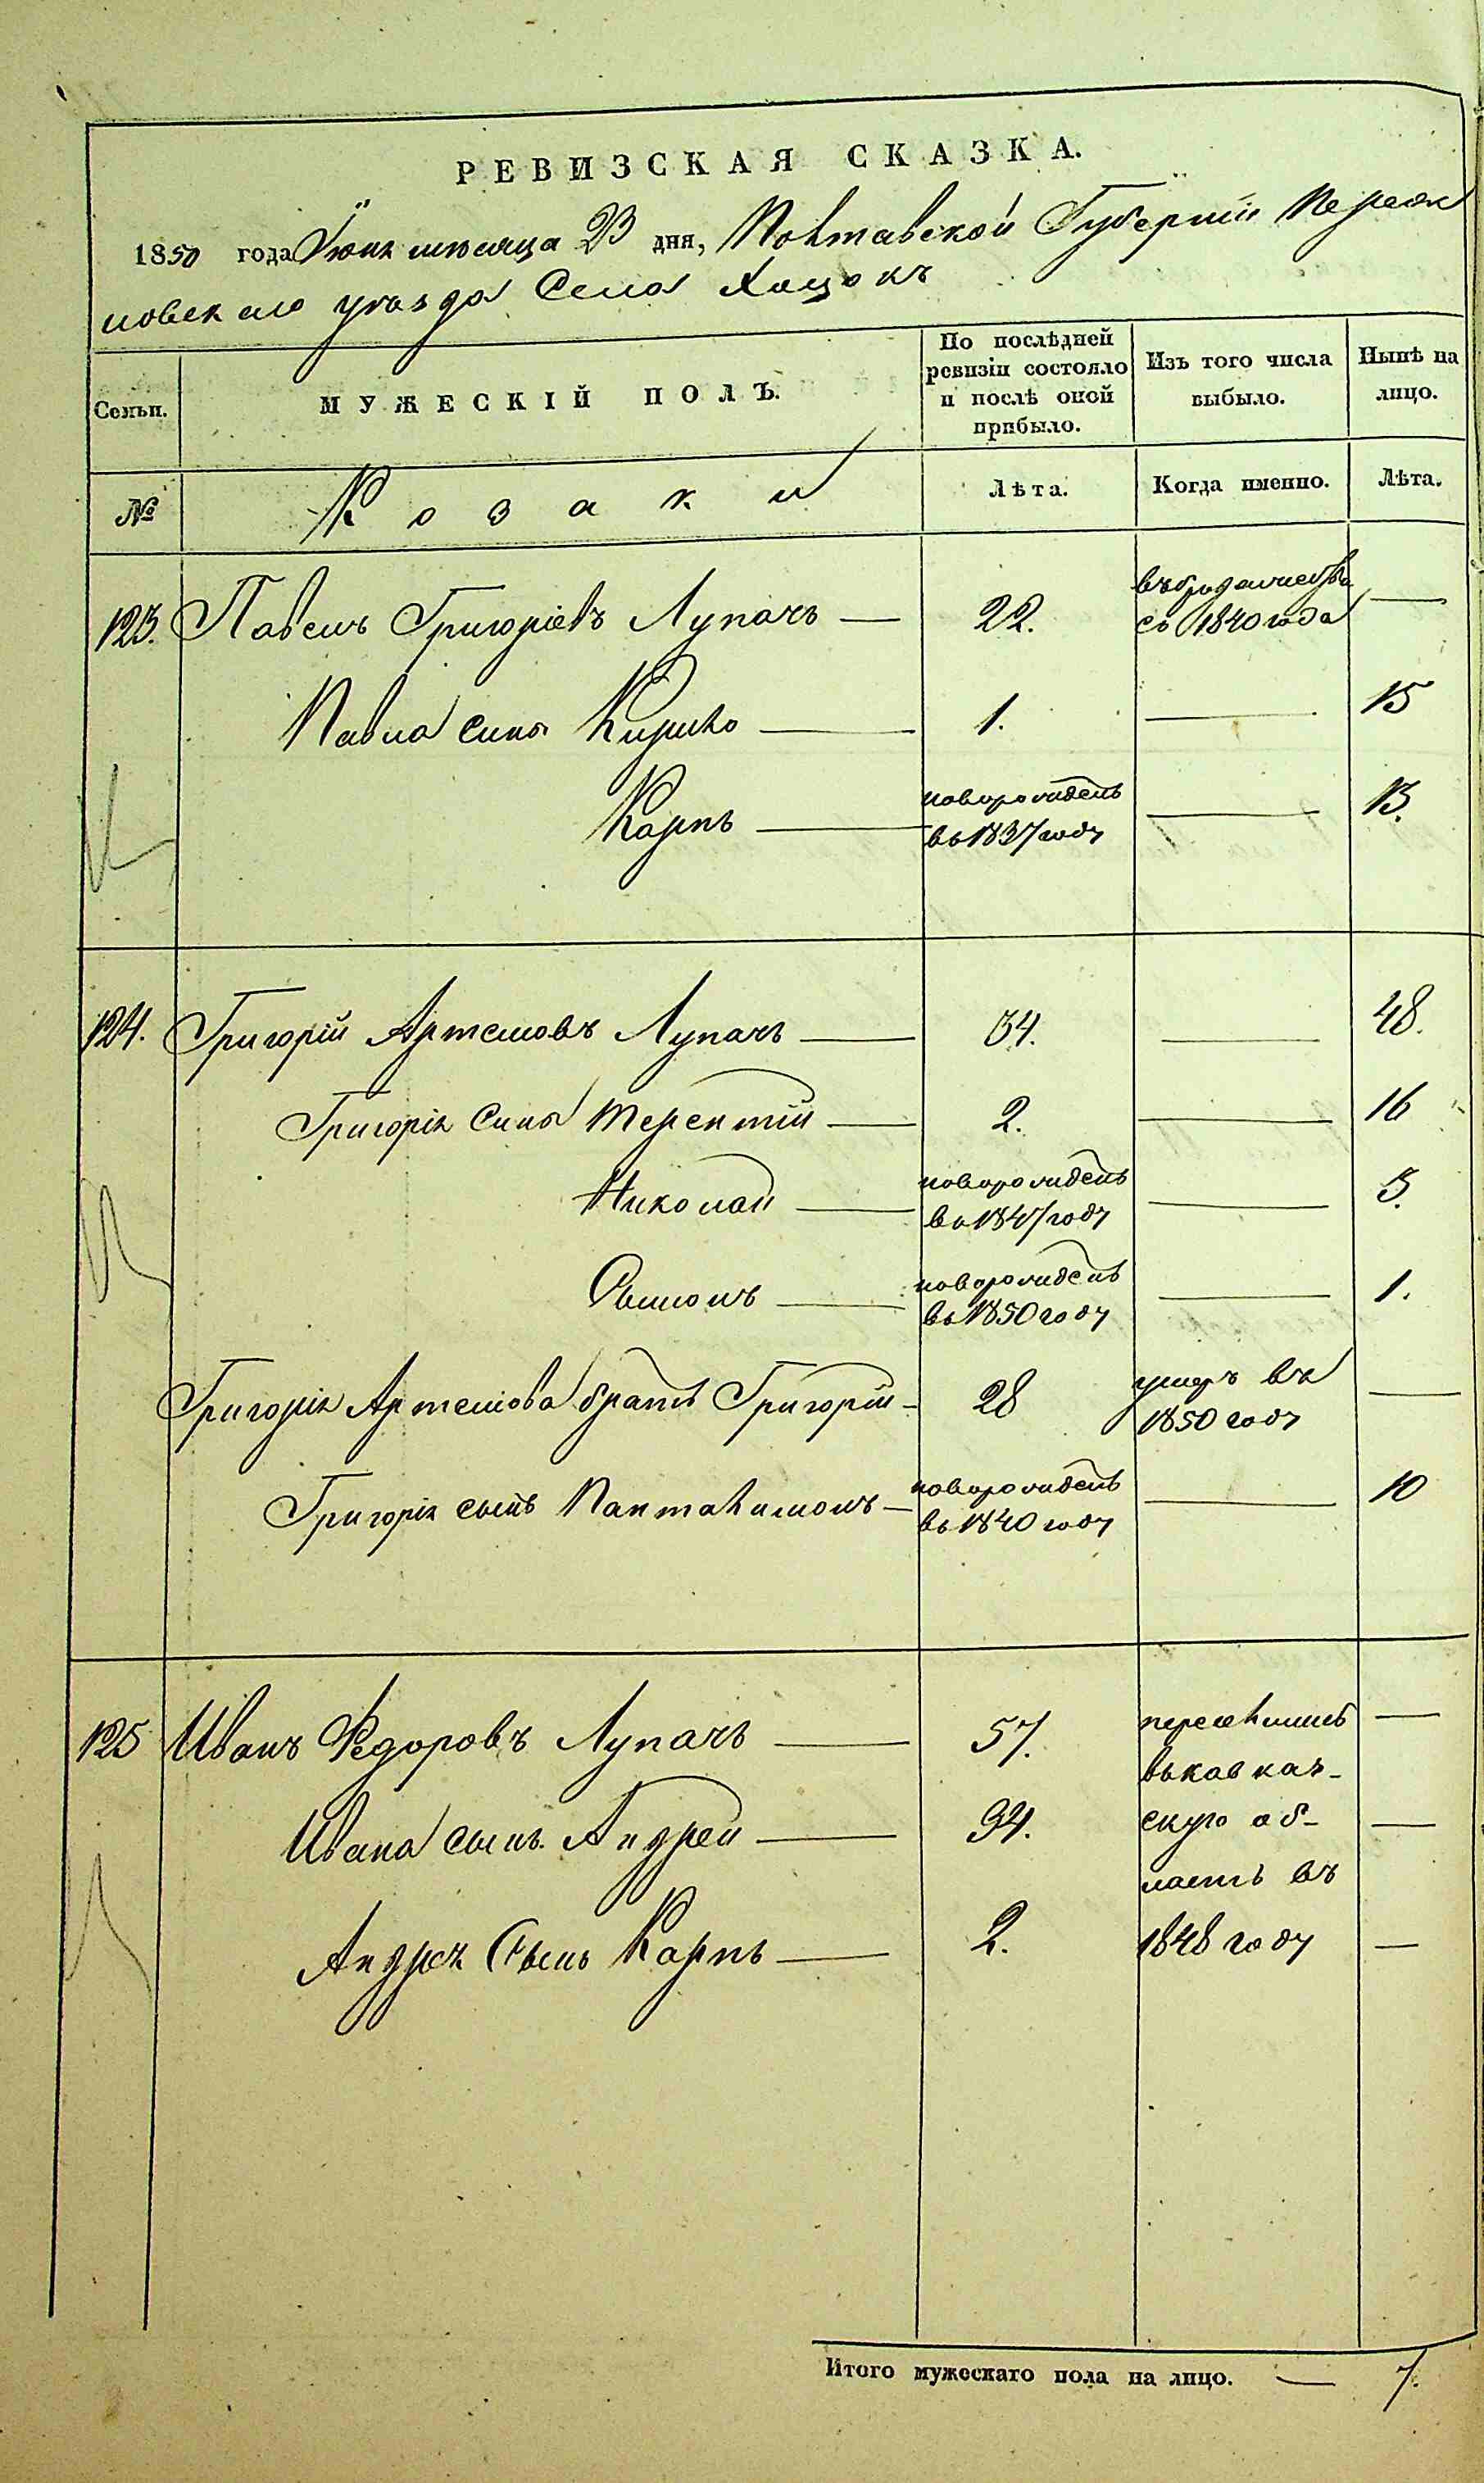 РЕВИЗСКАЯ СКАЗКА.
1850 года Іюня мѣсяца 23 дня, Полтавской Губерніи Переяс
ловскаго уѣзда Села Хоцокъ
Семьи.
МУЖЕСКІЙ ПОЛЪ.
По послѣдней
ревизіи состояло
и послѣ оной
прибыло.
Изъ того числа
выбыло.
Нынѣ на
лицо.
№
Козаки
Лѣта.
Когда именно.
Лѣта.
123. Павелъ Григоріевъ Лупачъ — 22. въ бродяжествѣ —
съ 1840 года
Павла сыны Кирило — 1. — 15
Карпъ — новорожденъ — 13.
въ 1837 году
124. Григорій Артемовъ Лупачъ — 34. — 48.
Григорія сыны Терентій — 2. — 16
Николай — новорожденъ — 3.
въ 1847 году
новорожденъ — 1.
въ 1850 году
Григорія Артемова братъ Григорій — 28 умеръ въ —
1850 году
Григорія сынъ Панталимонъ — новорожденъ — 10
въ 1840 году
125 Иванъ Федоровъ Лупачъ — 57. переселились —
въ кавказ-
Ивана сынъ Андрей — 34. скую об- —
ласть въ
Андрея Сынъ Карпъ — 2. 1848 году —
Итого мужескаго пола на лицо. — 7.